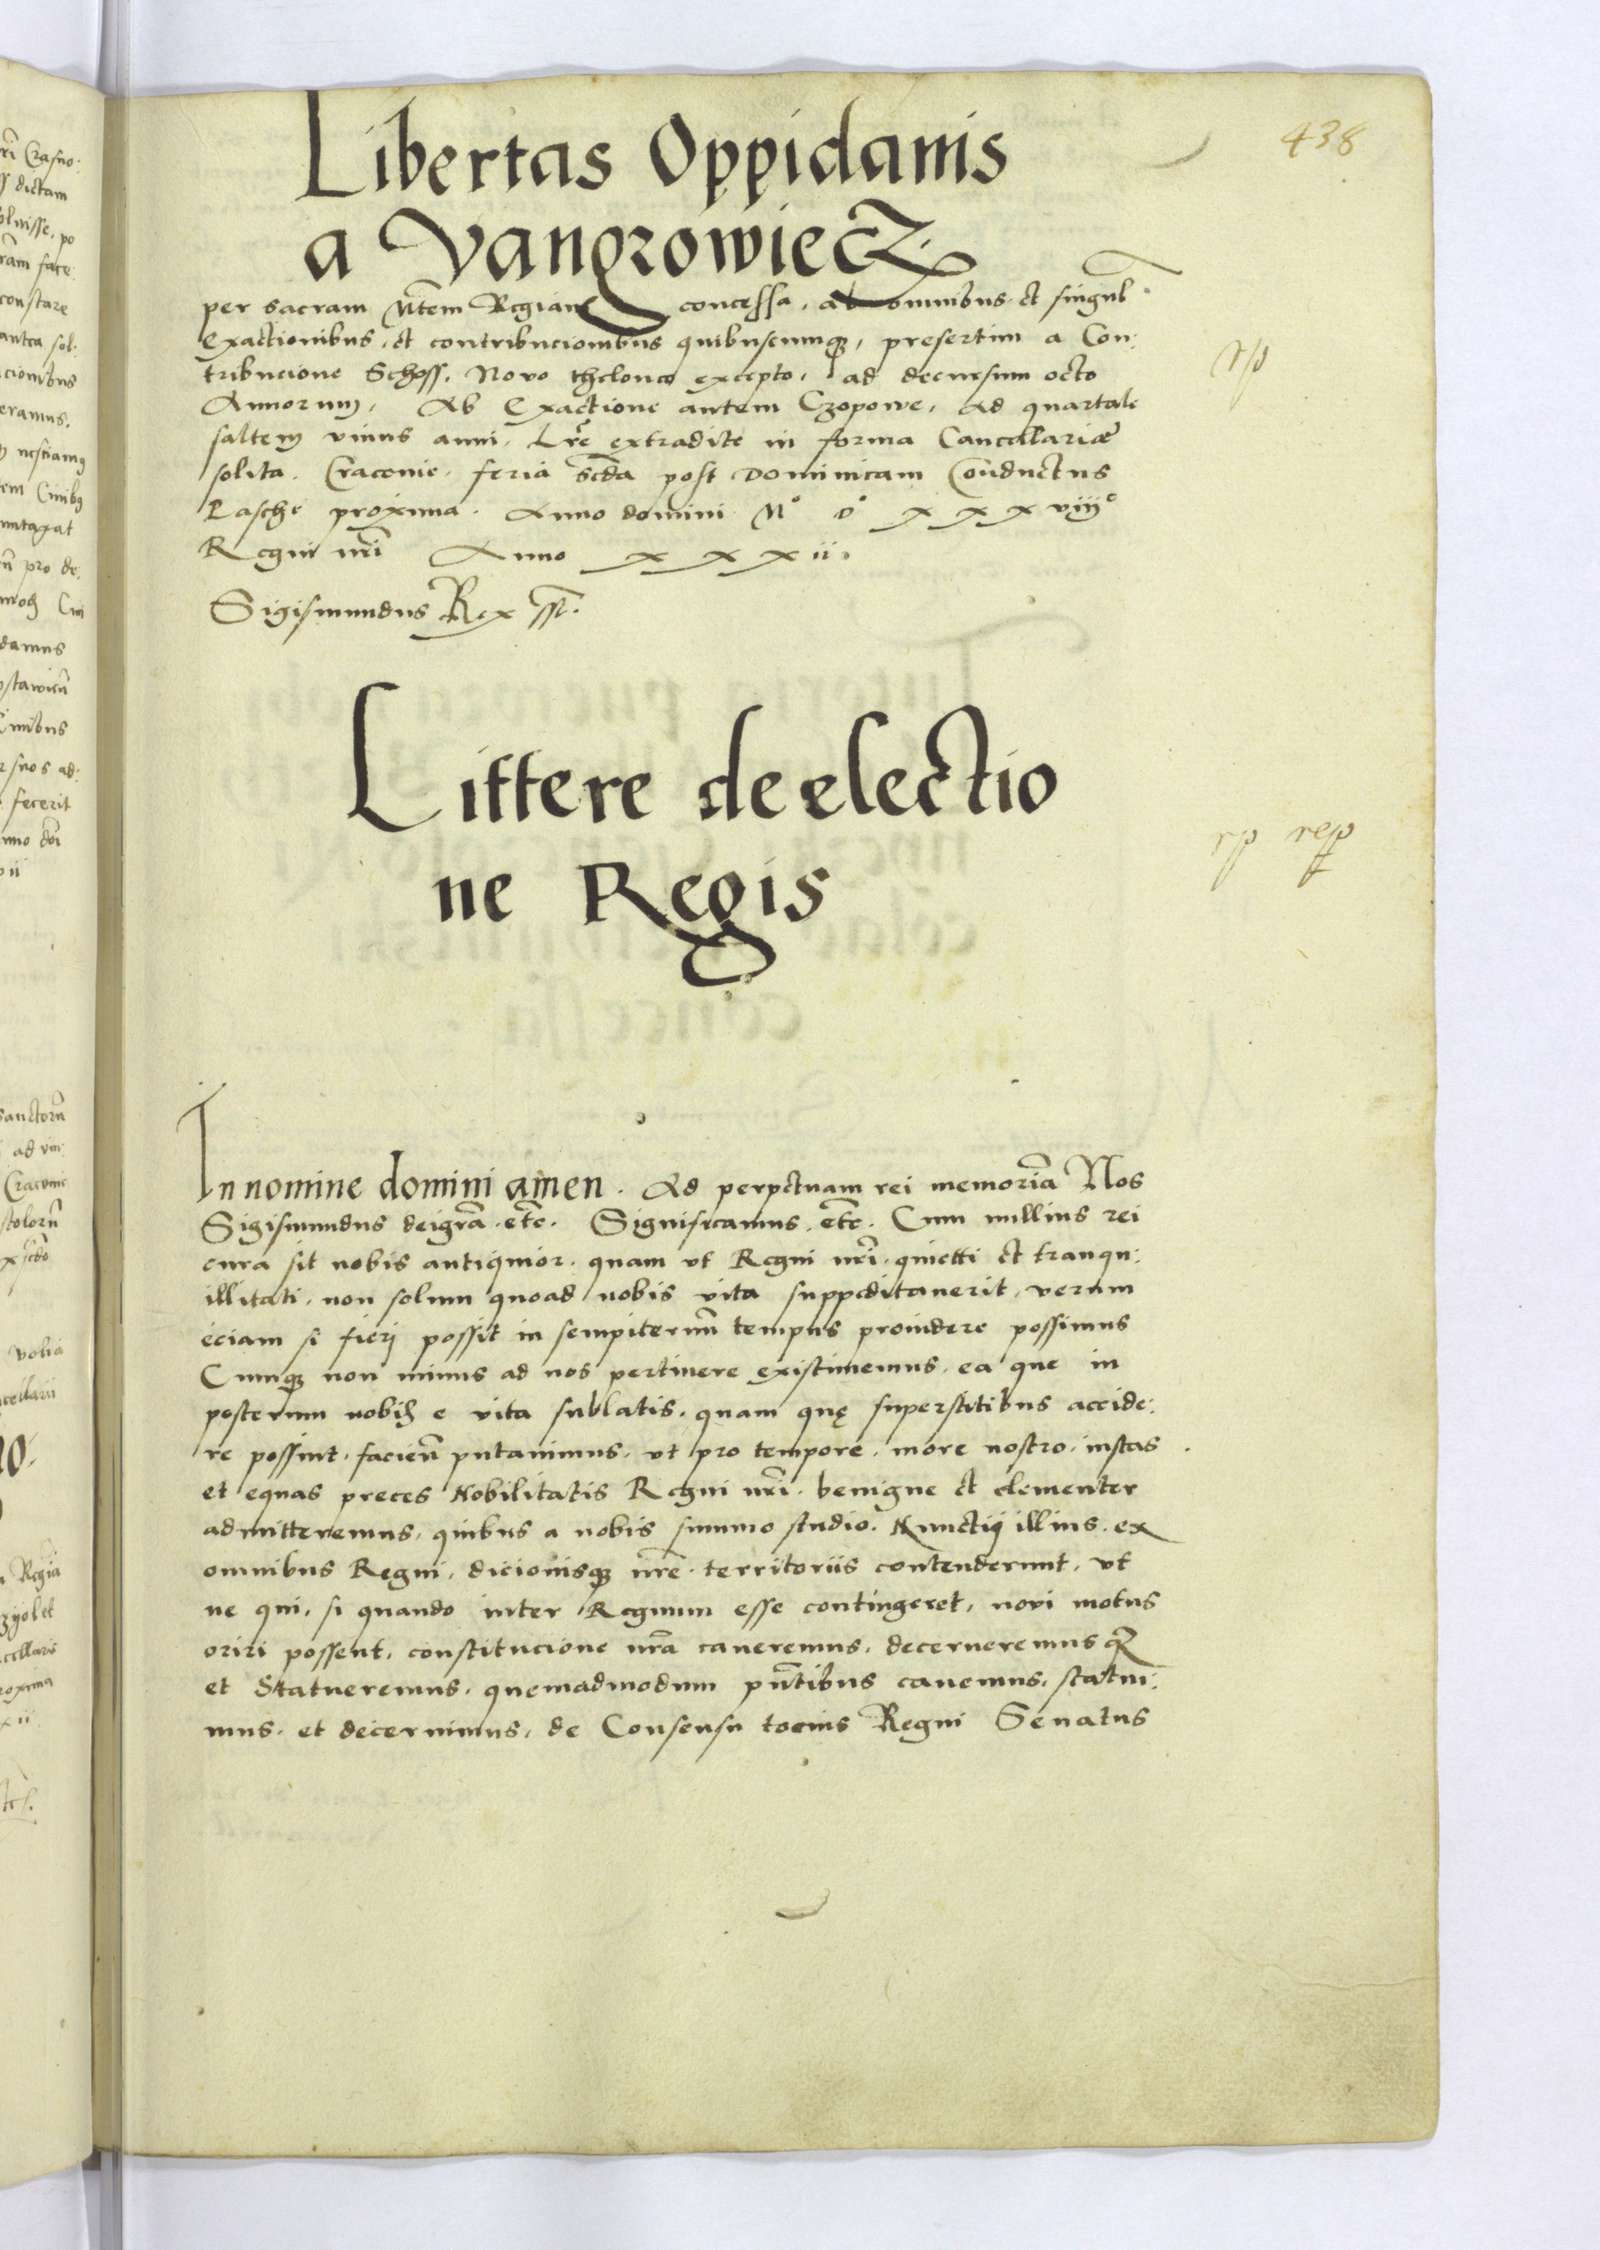 438
Libertas Oppidanis
a Vangrowiecz
per sacram Mtem Regiam concessa, ab omnibus et singul
Exactionibus, et contribucionibus quibuscumqз, presertim a Con:
tribucione Schoss, Novo theloneo excepto, ad decursum octo
Annorum, Ab Exactione autem Czopowe, Ad quartale
saltem unius anni. Lre extradite in forma Cancellariæ
solita. Cracovie feria scda post Dominicam Conductus
Pasche proxima. Anno domini M° D° xxxviij°
Regni nri Anno xxxii.
Sigismundus Rex sst.
rp
Littere de electio
ne Regis
rp resp
In nomine domini amen. Ad perpetuam rei memoria Nos
Sigismundus dei gra. etc. Significamus. etc. Cum nullius rei
cura sit nobis antiquior, quam ut Regni nri quietti et tranqu:
illitati, non solum quoad nobis vita suppeditaverit, verum
eciam si fieri possit in sempiternu tempus providere possimus
Cumqз non minus ad nos pertinere existimemus, ea que in
posterum nobis e vita sublatis, quam quę superstitibus accide:
re possint, faciend putavimus, ut pro tempore, more nostro, iustas
et equas preces Nobilitatis Regni nri benigne et clementer
admitteremus, quibus a nobis summo studio, Nunctij illius, ex
omnibus Regni, dicionisqз nre territoriis contenderunt, ut
ne qui, si quando inter Regnum esse contingeret, novi motus
oriri possent, constitucione nra caveremus, decerneremusqз
et Statueremus, quemadmodum pntibus cavemus, statui:
mus, et decernimus, de Consensu tocius Regni Senatus